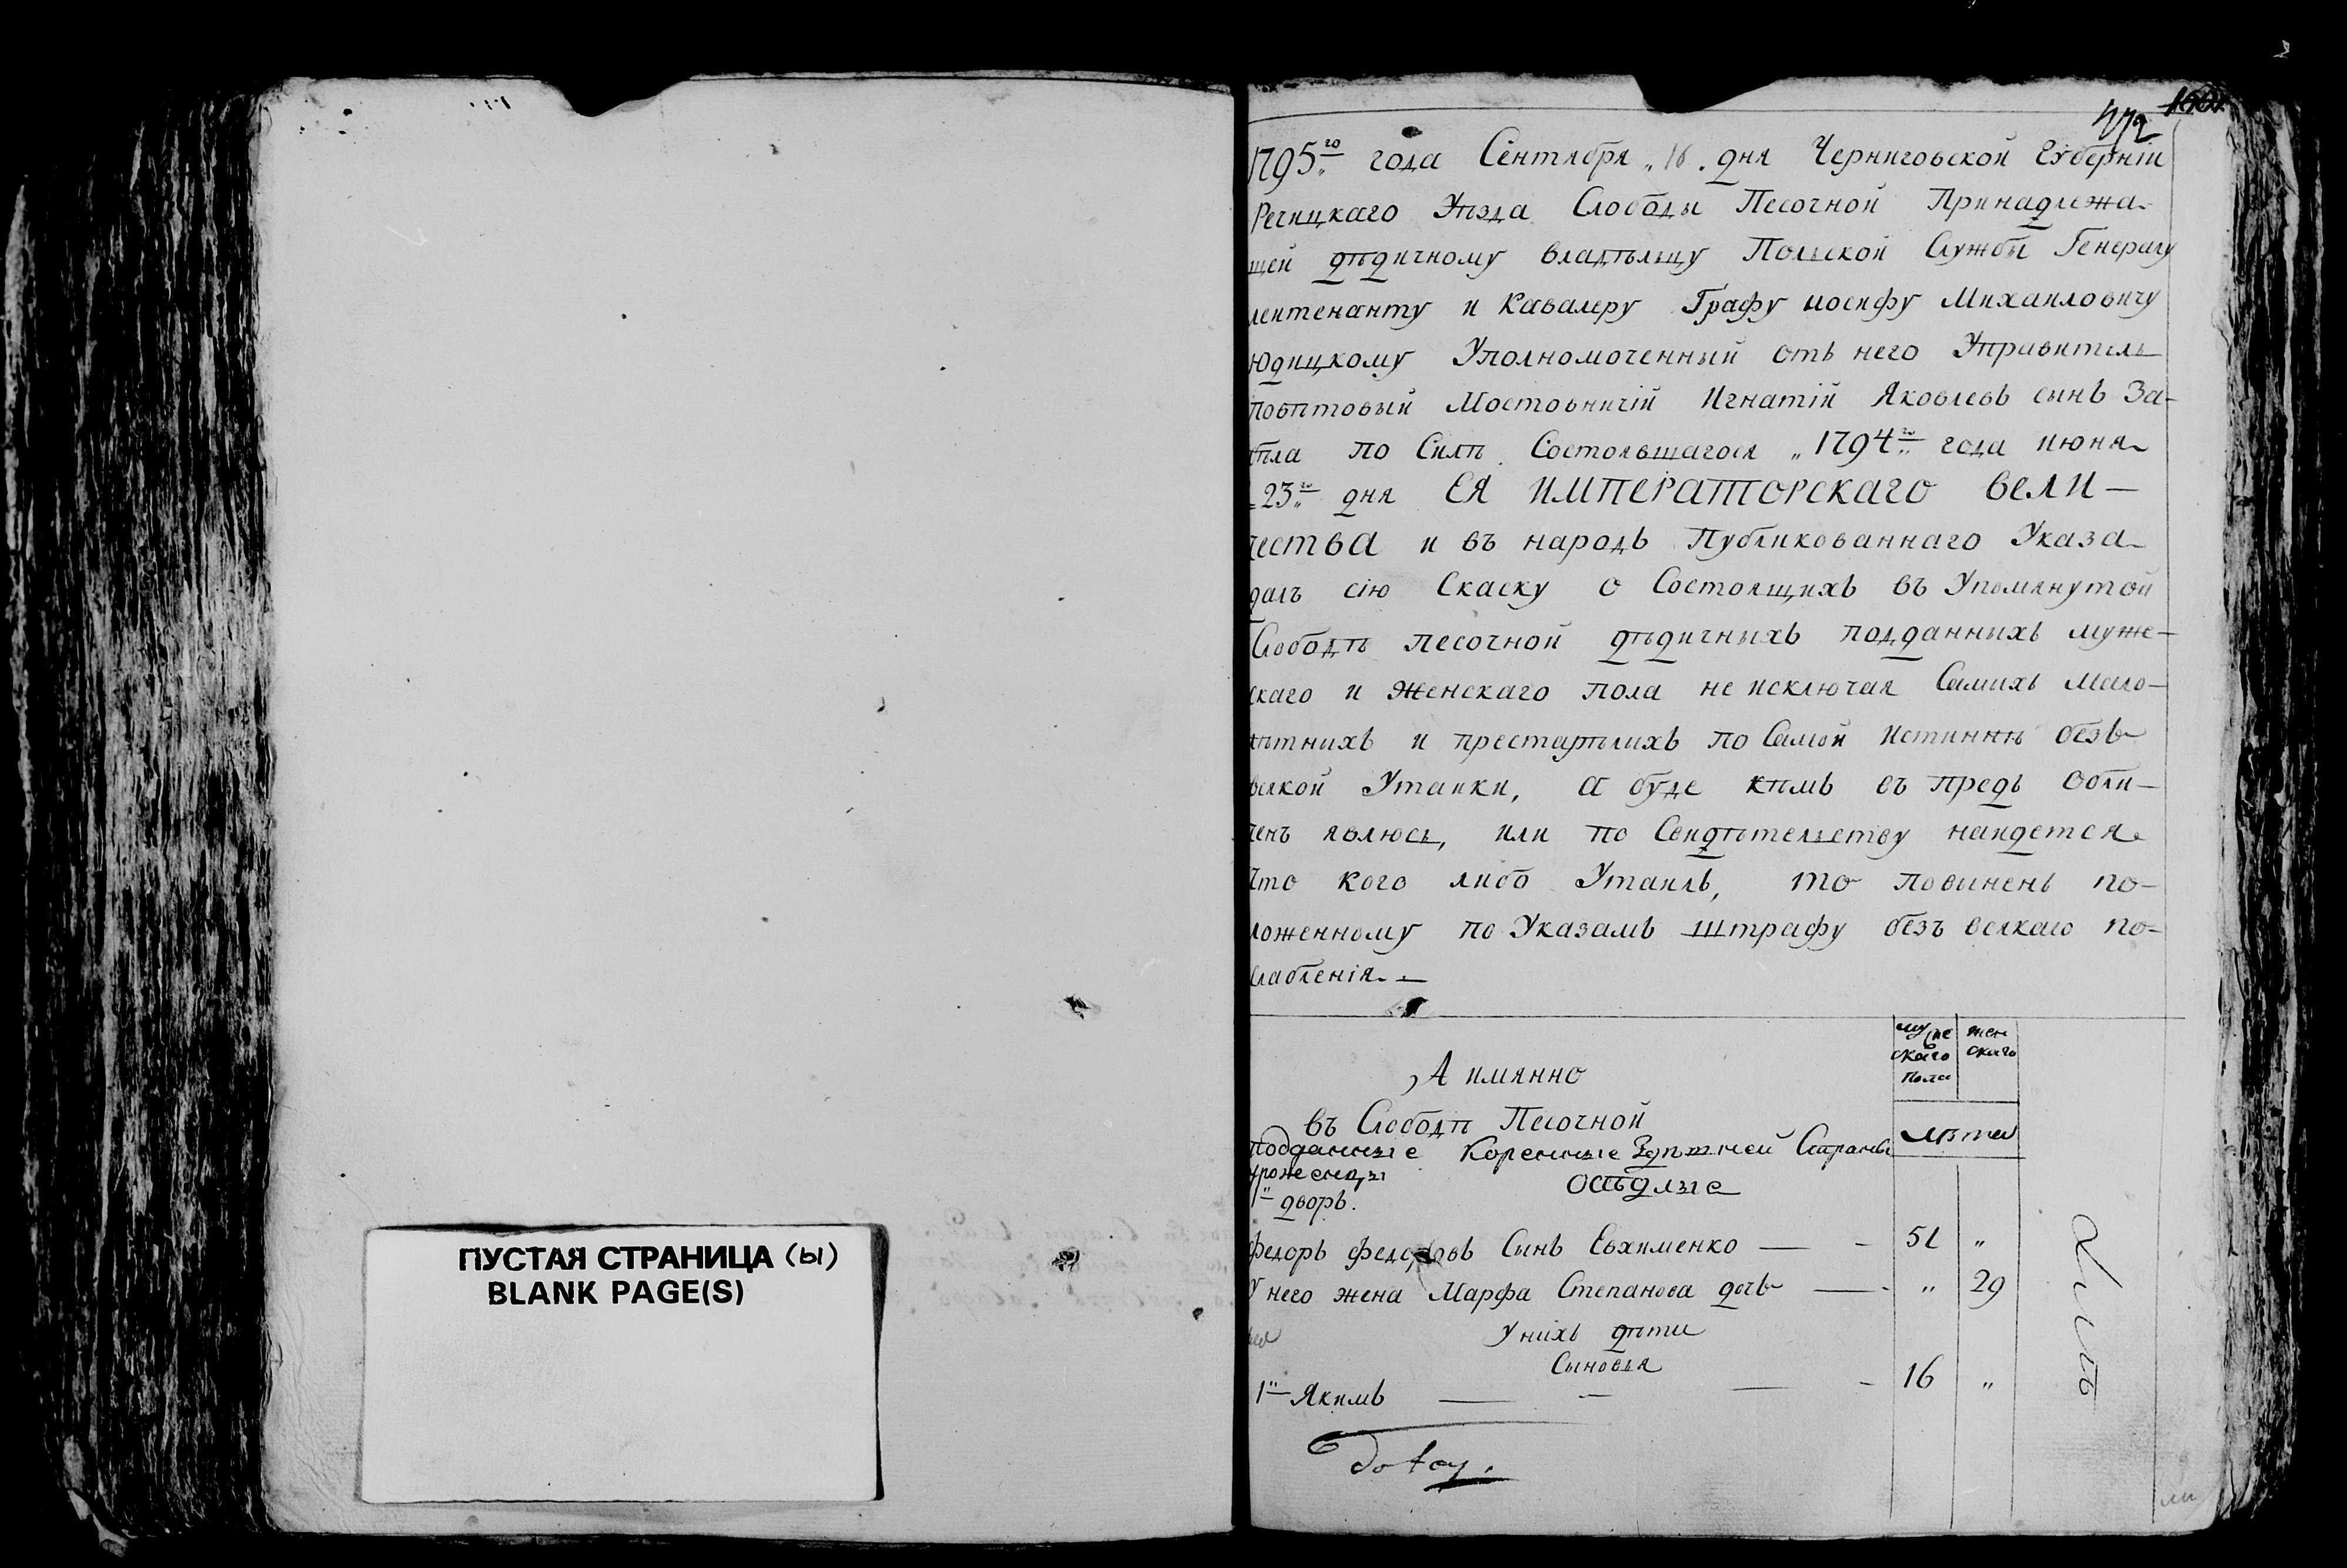 ПУСТАЯ СТРАНИЦА (ы)
BLANK PAGE(S)
472
1795го года Сентября „16„ дня Черниговской Губерніи
Речицкаго Уѣзда Слободы Песочной Принадлежа-
щей дѣдичному владѣльцу Польской Службы Генералу
лентенанту и Кавалеру Графу иосифу Михаиловичу
Юдицкому Уполномоченный отъ него Управитель
повѣтовый Мостовничій Игнатій Яковлевъ сынъ За-
ѣла по Силѣ Состоявшагося „1794го„ года июня
23го дня ЕЯ ИМПЕРАТОРСКАГО ВЕЛИ-
чества и въ народъ Публикованнаго Указа
далъ сію Скаску о Состоящихъ въ Упомянутой
Слободѣ песочной дѣдичныхъ подданныхъ муже-
скаго и женскаго пола не исключая Самихъ мало-
лѣтнихъ и престарѣлихъ по Самой истиннѣ безъ
всякой Утаики, а буде кѣмъ въ предь обли-
ченъ явлюсь, или по Свидѣтельству наидется
Что кого либо Утаилъ, то повиненъ по-
ложенному по Указамъ штрафу безъ всякаго по-
слабленія.
муже
скаго
пола
жен
скаго
А имянно
въ Слободѣ Песочной
лѣта
подданные Коренные Здѣшней Страны
уроженцы
осѣдлые
1й дворъ.
Федоръ Федоровъ Сынъ Евхименко — 51 „
У него жена Марфа Степанова дочь — „ 29
У нихъ дѣти
Сыновья
1й Якимъ — 16 „